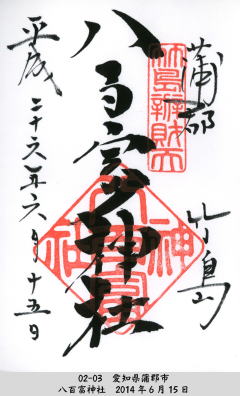 蒲郡
竹島
竹島弁財天
八百富神社
平成二十六年六月十五日
02-03 愛知県蒲郡市
八百富神社 2014年6月15日